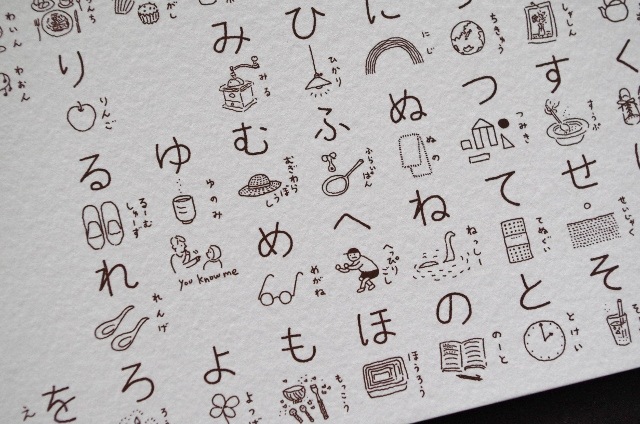 く
しゃしん
す
すうぷ
せ
せいじゃく
そ
ちきゅう
つ
つみき
て
てぬぐい
と
とけい
に
にじ
ぬ
ぬの
ね
ねっしー
の
のーと
ひ
ひかり
ふ
ふらいぱん
へ
へっぴりごし
ほ
ほうろう
み
みる
む
むぎわら
ぼうし
め
めがね
も
もっこう
ゆ
ゆのみ
you know me
よ
よつば
り
りんご
る
るーむ
しゅーず
れ
れんげ
ろ
ろ
わいん
わおん
を
え